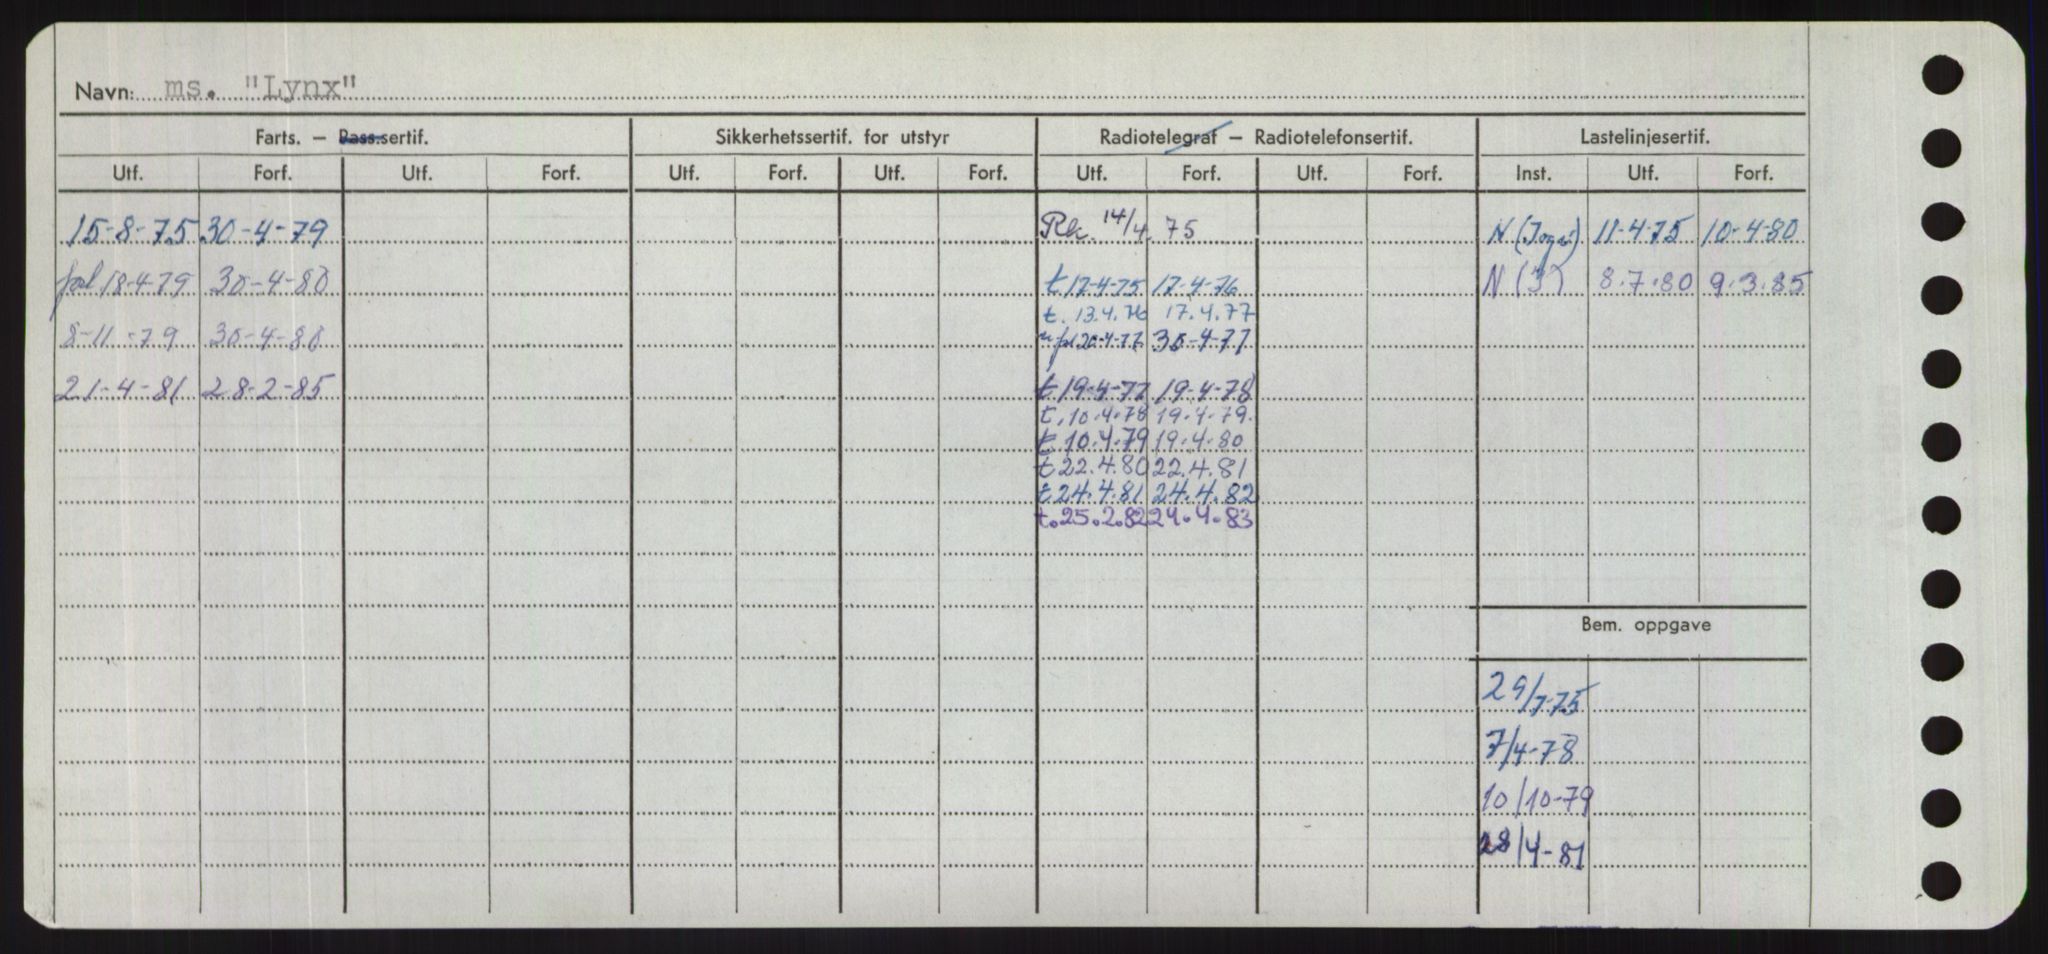 Navn: ms. "Lynx"
Farts. — Pass.sertif. Sikkerhetssertif. for utstyr Radiotelegraf — Radiotelefonsertif. Lastelinjesertif.
Utf. Forf. Utf. Forf. Utf. Forf. Utf. Forf. Utf. Forf. Utf. Forf. Inst. Utf. Forf.
15-8-75 30-4-79 Rk. 14/4 75 N 11-4-75 10-4-80
18-4-79 30-4-80 t.17-4-75 17-4-76 N (J) 8.7.80 9.3.85
t. 13.4.76 17.4.77
8-11-79 30-4-80 20-4-77 30-4-77
21-4-81 28-2-85 t.19-4-77 19-4-78
t.10.4.78 19.4.79.
t.10.4.79 19.4.80
t.22.4.80 22.4.81
t.24.4.81 24.4.82
t.25.2.82 24.4.83
Bem. oppgave
29/7-75
7/4-78
10/10-79
28/4-81